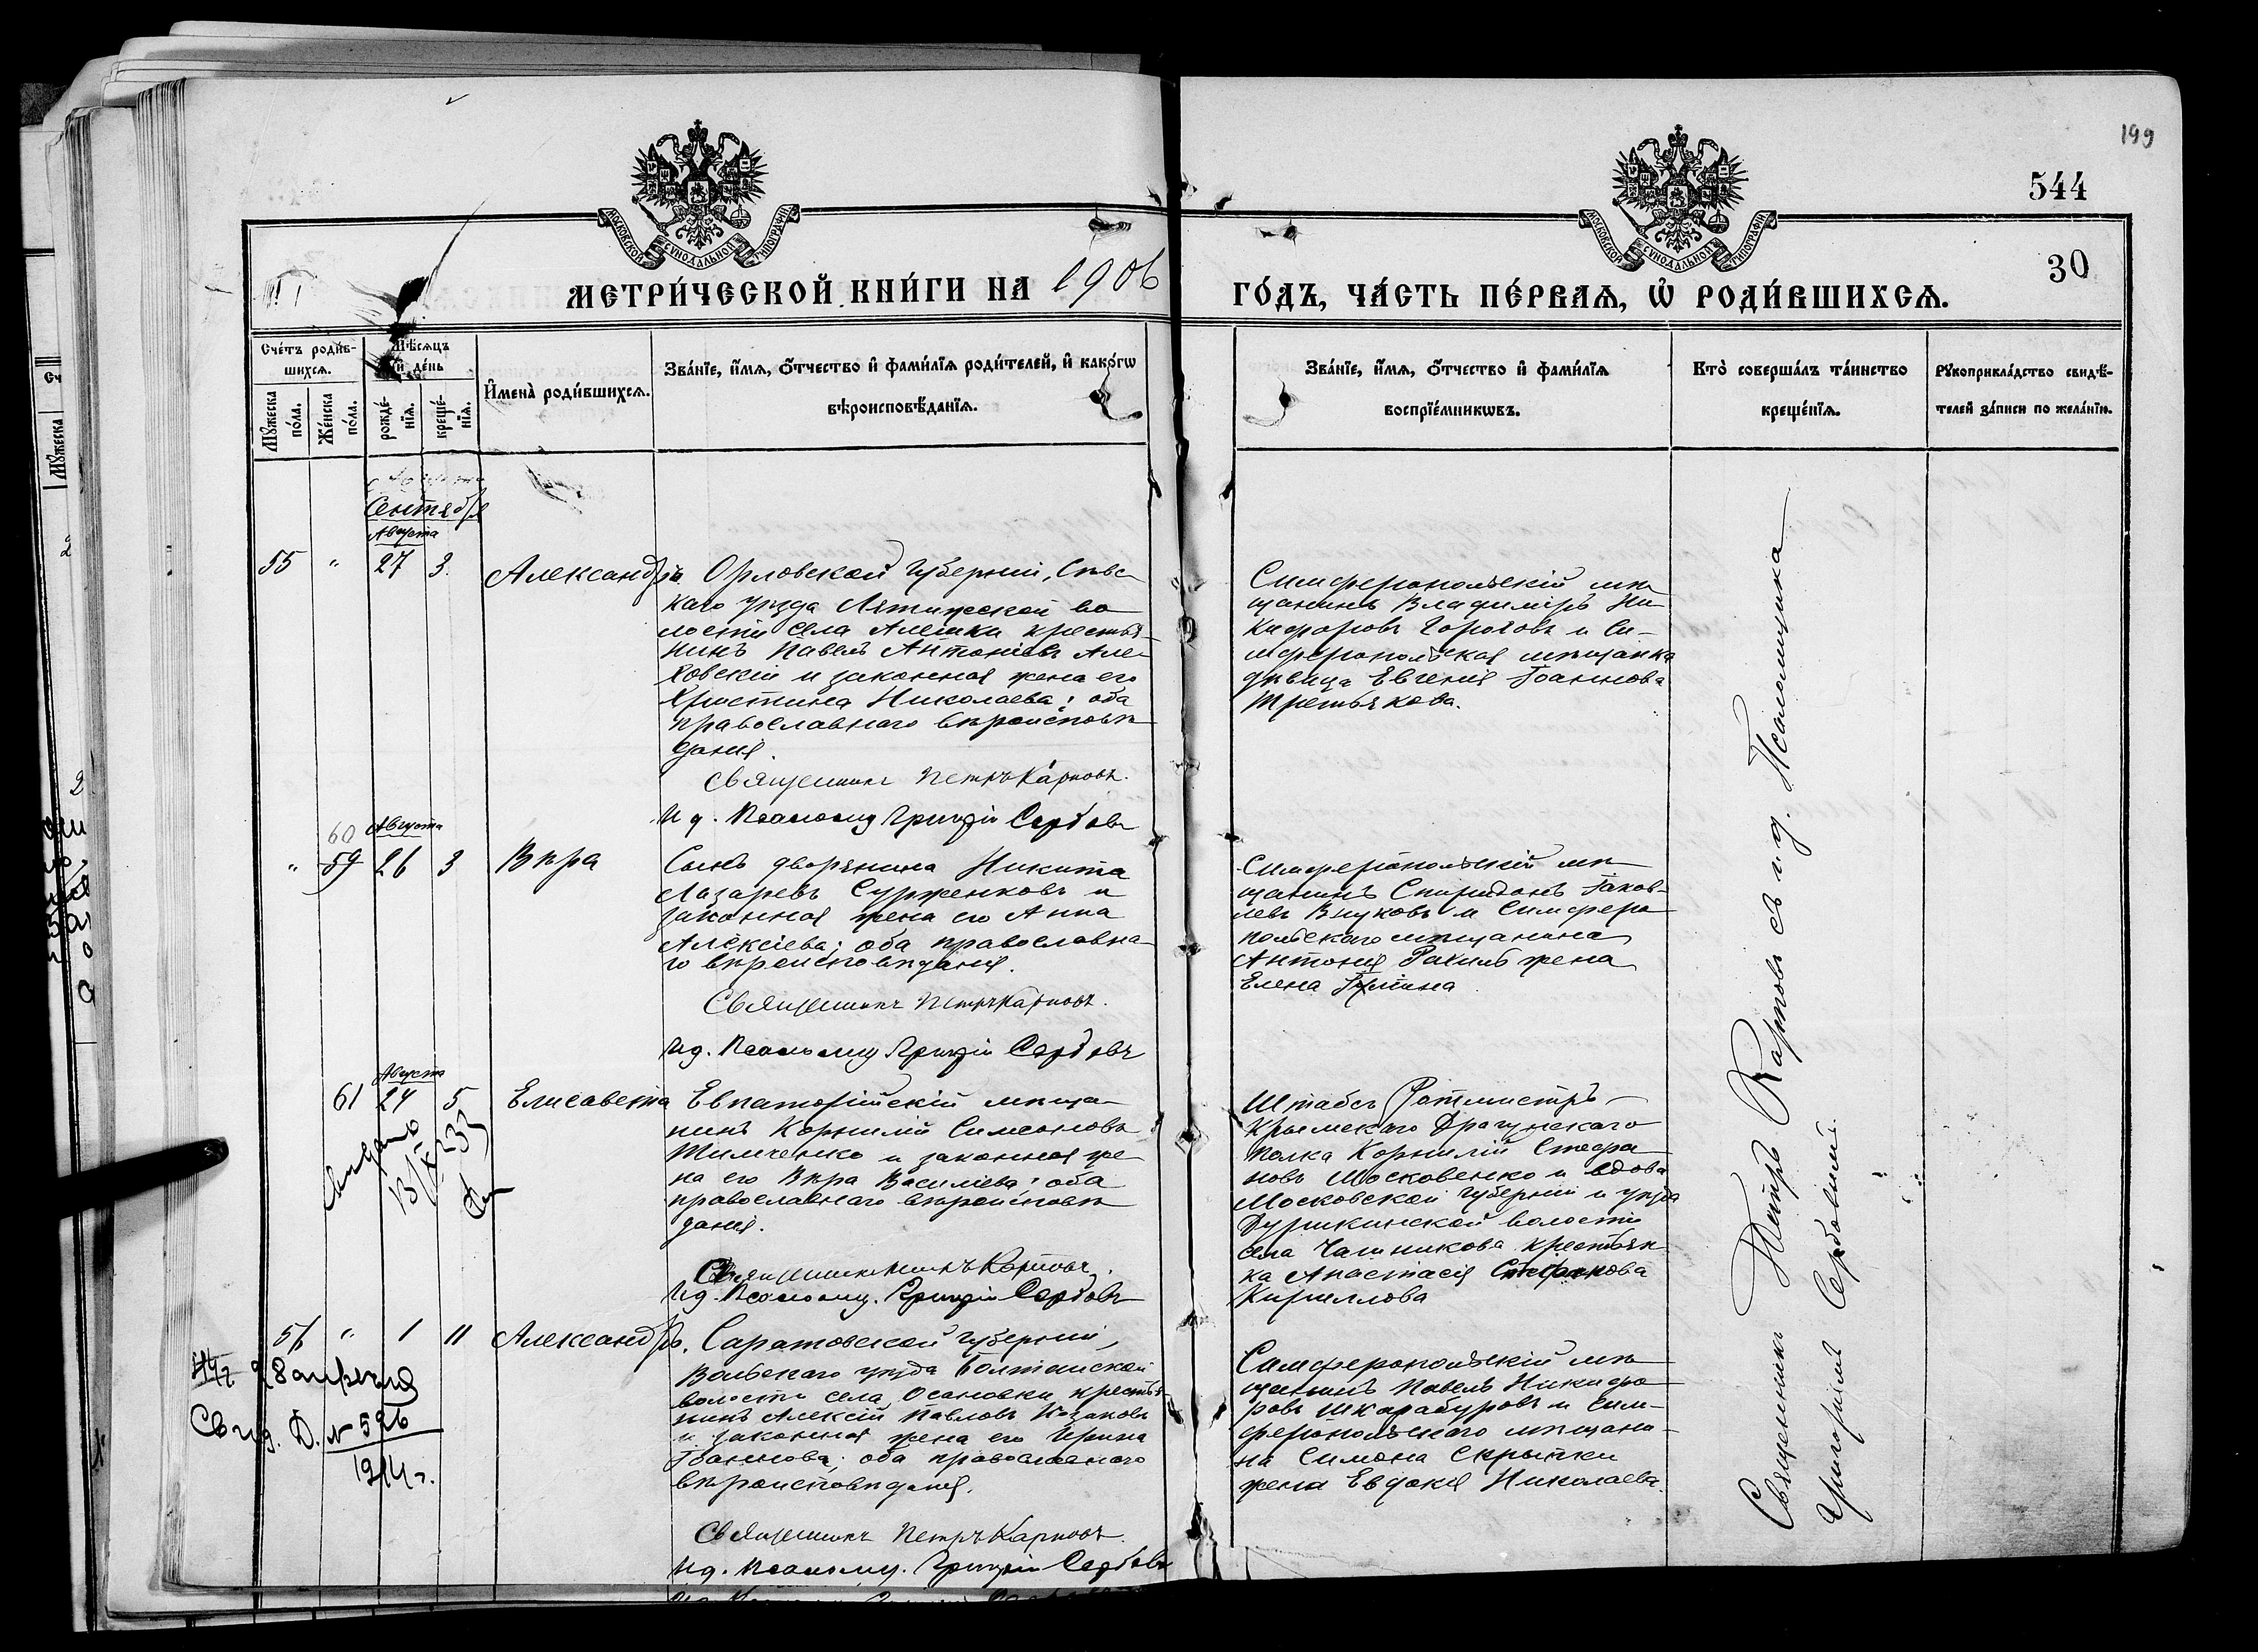 199
544
30
МОСКОВСКОЙ СѴНОДАЛЬНОЙ ТИПОГРАФІИ
МОСКОВСКОЙ СѴНОДАЛЬНОЙ ТИПОГРАФІИ
МЕТРИ́ЧЕСКОЙ КНИ́ГИ НА 1906 ГО́ДЪ, ЧА́СТЬ ПЕ́РВАѦ, Ѡ҆ РОДИ́ВШИХСѦ.
Сче́тъ роди́в-
шихсѧ.
Мѹ́жеска по́ла.
Же́нска по́ла.
Мѣ́сѧцъ и҆ де́нь
рожде́-
нїѧ.
креще́-
нїѧ.
И҆мена̀ роди́вшихсѧ.
Зва́нїе, и҆́мѧ, ѻ҆́тчество и҆ фами́лїѧ роди́телей, и҆ како́гѡ
вѣроисповѣ́данїѧ.
Зва́нїе, и҆́мѧ, ѻ҆́тчество и҆ фами́лїѧ
воспрїе́мникѡвъ.
Кто̀ соверша́лъ та́инство
креще́нїѧ.
Рѹкоприкла́дство свидѣ́-
телей за́писи по жела́нїю.
Сентября
Августа
55 " 27 3. Александръ
Орловской губерніи, Сѣвс-
каго уѣзда
лости села Алешки крестья-
нинъ Павелъ Антоніевъ Але-
ховскій и законная жена его
Христина Николаева; оба
православнаго вѣроисповѣ-
данія.
Священникъ Петръ Карповъ.
И д. Псаломщ Григорій Сербовъ
Симферопольскій мѣ-
щанинъ Владиміръ Ни-
кифоровъ Гороховъ и Си-
мферопольская мѣщанка
дѣвица Евгенія Іоаннова
Третьякова.
Августа
60
" 59 26 3 Вѣра
Сынъ дворянина Никита
Лазаревъ Сурженковъ и
законная жена его Анна
Алексіева; оба православна-
го вѣроисповѣданія.
Священникъ Петръ Карповъ.
Ид. Псаломщ Григорій Сербовъ
Симферопольскій мѣ-
щанинъ Спиридонъ Іаков-
левъ Внуковъ и Симферо-
польскаго мѣщанина
Антонія жена
Елена
Августа
61 24 5 Елисавета
Выдано
Евпаторійскій мѣща-
нинъ Корнилій Симеоновъ
Тимченко и законная же-
на его Вѣра Василіева; оба
православнаго вѣроисповѣ-
данія.
Священникъ Петръ Карповъ.
Ид. Псаломщ. Григорій Сербовъ
Штабсъ Ротмистръ
Крымскаго Драгунскаго
полка Корнилій Стефа-
новъ Московенко и вдова
Московской губерніи и уѣзда
Дурыкинской волости
села Чашникова крестьян-
ка Анастасія Стефанова
Кириллова
56 " 1 11 Александръ.
28 апрѣля
Свид. Д. № 596
1914 г.
Саратовской губерніи,
Вольскаго уѣзда
волости села Осановки крестья-
нинъ Алексій Павловъ Козаковъ
и законная жена его Ирина
Іоаннова; оба православнаго
вѣроисповѣданія.
Священникъ Петръ Карповъ.
Ид. Псаломщ. Григорій Сербовъ
Симферопольскій мѣ-
щанинъ Павелъ Никифо-
ровъ Шкарабуровъ и Сим-
феропольскаго мѣщани-
на Симона Скрыпки
жена Евдокія Николаева.
Священникъ Петръ Карповъ съ и д. Псаломщика
Григоріемъ Сербовымъ.